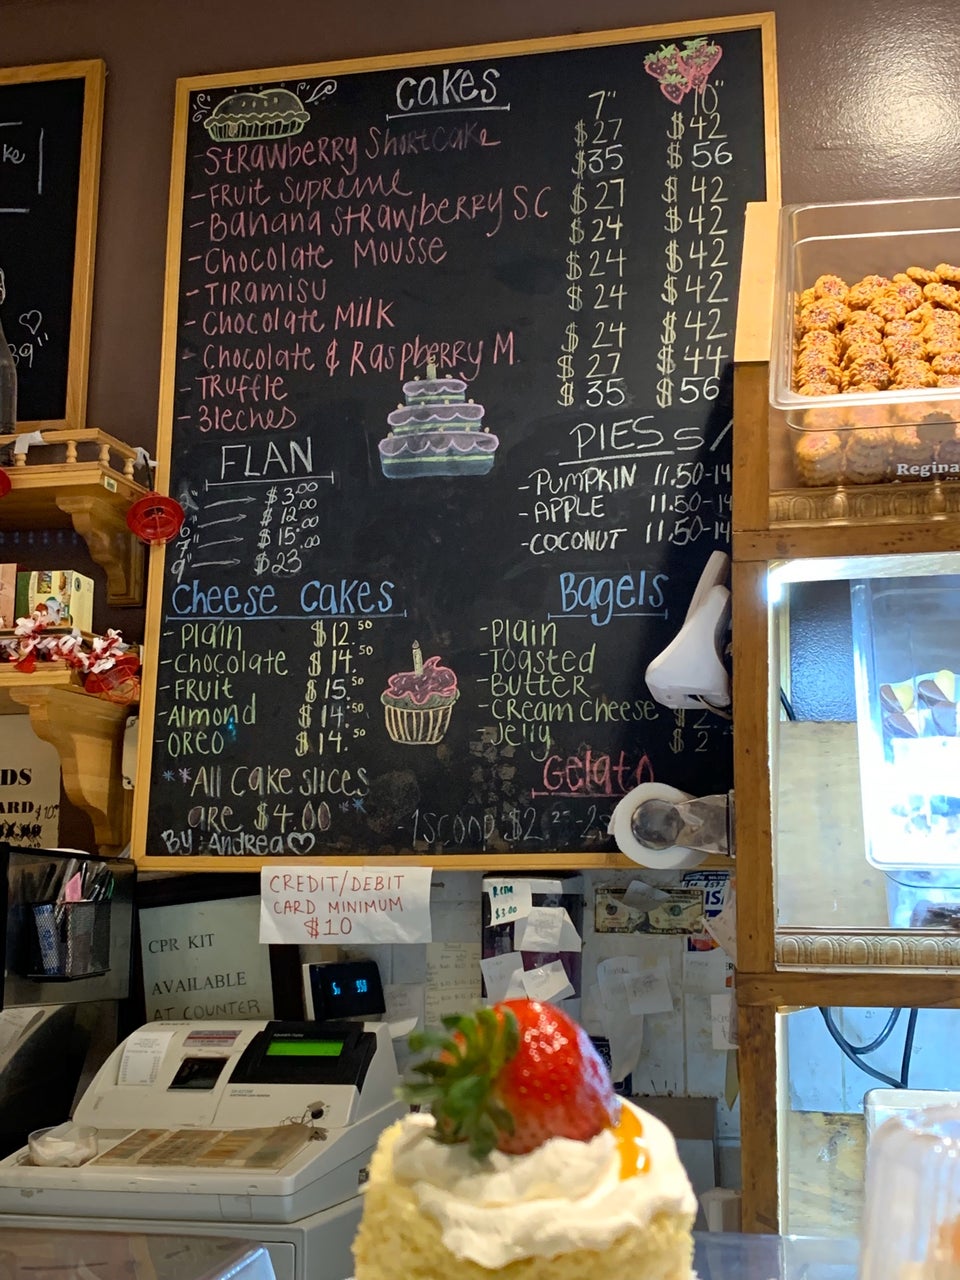 Cakes
7" 10"
- Strawberry Shortcake $27 $42
- Fruit Supreme $35 $56
- Banana Strawberry S.C $27 $42
- Chocolate Mousse $24 $42
- Tiramisu $24 $42
- Chocolate Milk $24 $42
- Chocolate & Raspberry M. $24 $42
- Truffle $27 $44
- 3leches $35 $56
FLAN
$3.00
6" $12.00
7" $15.00
9" $23
PIES
- PUMPKIN 11.50-14
- APPLE 11.50-14
- COCONUT 11.50-14
Cheese Cakes
- Plain $12.50
- Chocolate $14.50
- Fruit $15.50
- Almond $14.50
- Oreo $14.50
**All Cake slices
are $4.00**
By: Andrea
Bagels
- Plain
- Toasted
- Butter
- Cream Cheese $2
- Jelly $2
Gelato
- 1scoop $2
CREDIT/DEBIT
CARD MINIMUM
$10
CPR KIT
AVAILABLE
AT COUNTER
$3.00
Regina
DS
ARD $10